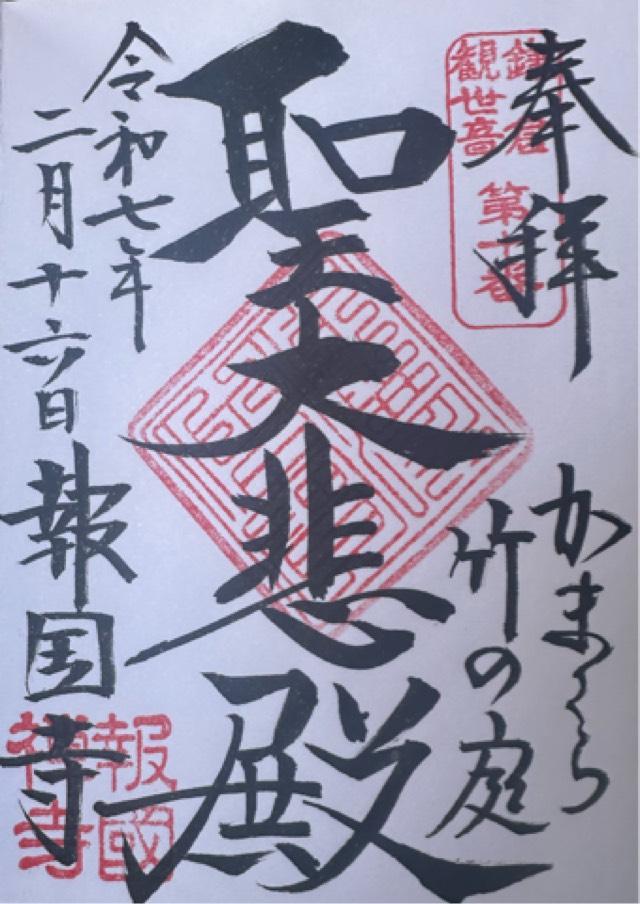 奉拝
鎌倉
観世音
第十番
かまくら
竹の庭
聖大悲殿
令和七年
二月十六日
報国寺
報國
禅寺